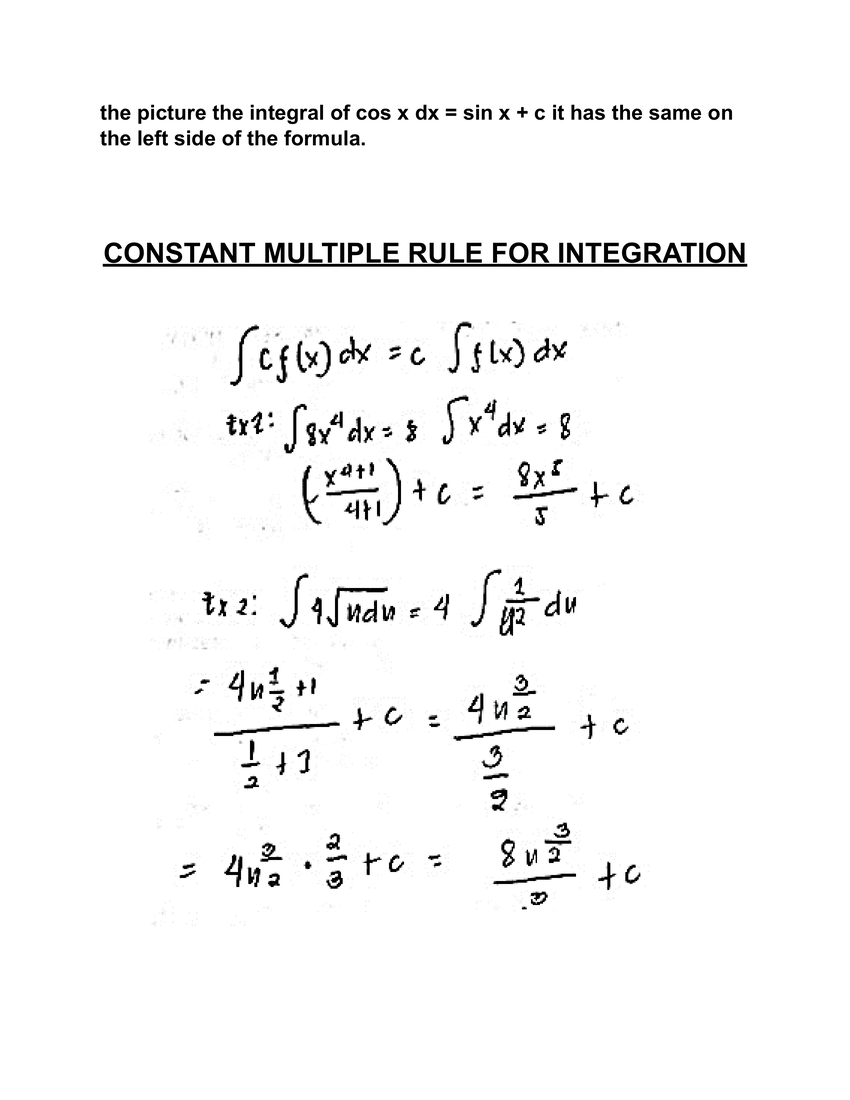 the picture the integral of cos x dx = sin x + c it has the same on
the left side of the formula.
CONSTANT MULTIPLE RULE FOR INTEGRATION
∫cf(x) dx = c ∫f(x) dx
Ex1: ∫8x^4 dx = 8 ∫x^4 dx = 8
(x^{4+1}/4+1) + c = 8x^5/5 + c
Ex 2: ∫4√udu = 4 ∫u^{1/2} du
= 4u^{1/2 +1}/(1/2 + 1) + c = 4u^{3/2}/(3/2) + c
= 4u^{3/2} · 2/3 + c = 8u^{3/2}/3 + c